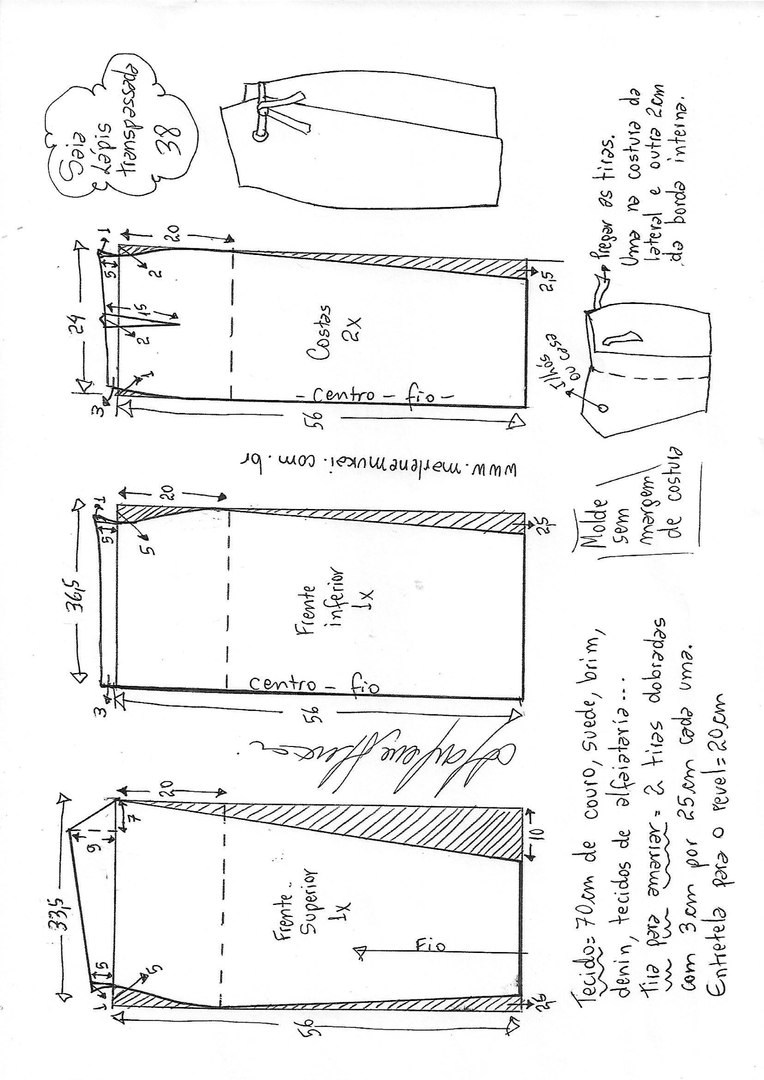 Saia
lápis
transpassada
38
24
1
5
20
2
15
2
1
3
Costas
2X
- Centro - fio -
56
2,5
Pregar as tiras.
Uma na costura da
lateral e outra 2cm
da borda interna.
Ilhós
ou casa
www.marlenemukai.com.br
36,5
1
5
20
5
3
Frente
inferior
1X
centro - fio
56
2,5
Molde
sem
margem
de costura
Marlene Mukai
33,5
9
7
20
5
1
5
Frente
Superior
1X
Fio
10
56
2,5
Tecido= 70cm de couro, suede, brim,
denin, tecidos de alfaiataria...
Tira para amarrar= 2 tiras dobradas
com 3cm por 25cm cada uma.
Entretela para o revel= 20cm